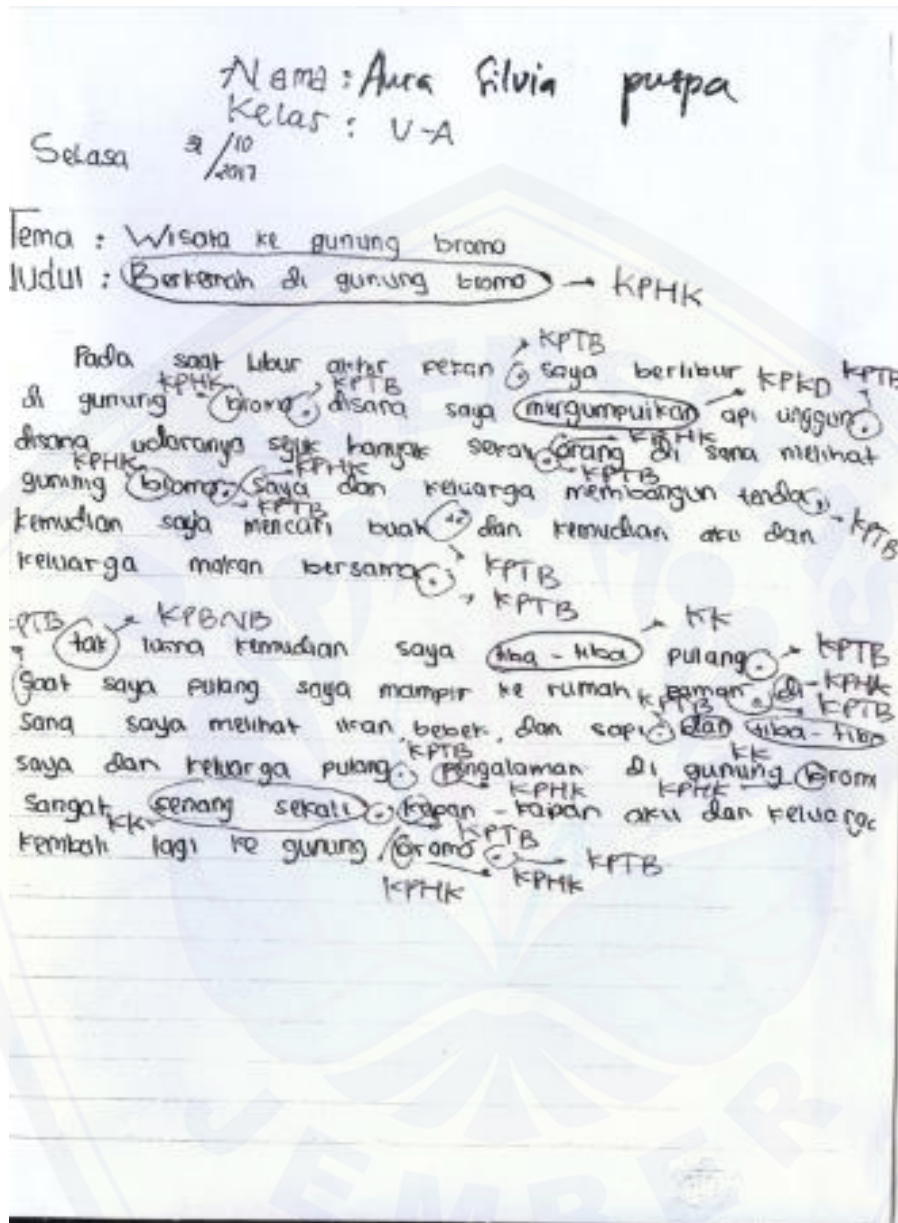 Nama : Aura Silvia puspa
Kelas : V-A
Selasa 3/10 2017
Tema : Wisata ke gunung bromo
Judul : Berkemah di gunung bromo → KPHK
KPTB
Pada saat libur akhir pekan saya berlibur KPKD KPTB
KPHK KPTB
di gunung bromo. disana saya mengumpulkan api unggun.
KPHK
disana udaranya sejuk banyak sekali. orang di sana melihat
KPHK KPHK KPTB
gunung bromo. Saya dan keluarga membangun tenda,
KPTB KPTB
kemudian saya mencari buah dan kemudian aku dan
keluarga makan bersama. KPTB
KPTB
KPTB KPBNB KK
tak lama kemudian saya tiba - tiba pulang. KPTB
Saat saya pulang saya mampir ke rumah paman. di KPHK
KPTB KPTB
sana saya melihat ikan, bebek, dan sapi. dan tiba - tiba
KPTB KK
saya dan keluarga pulang. pengalaman di gunung brom
KPHK KPHK
sangat senang sekali. kapan - kapan aku dan keluarga
KK KPTB
kembali lagi ke gunung bromo. KPTB
KPHK KPHK
JEMBER